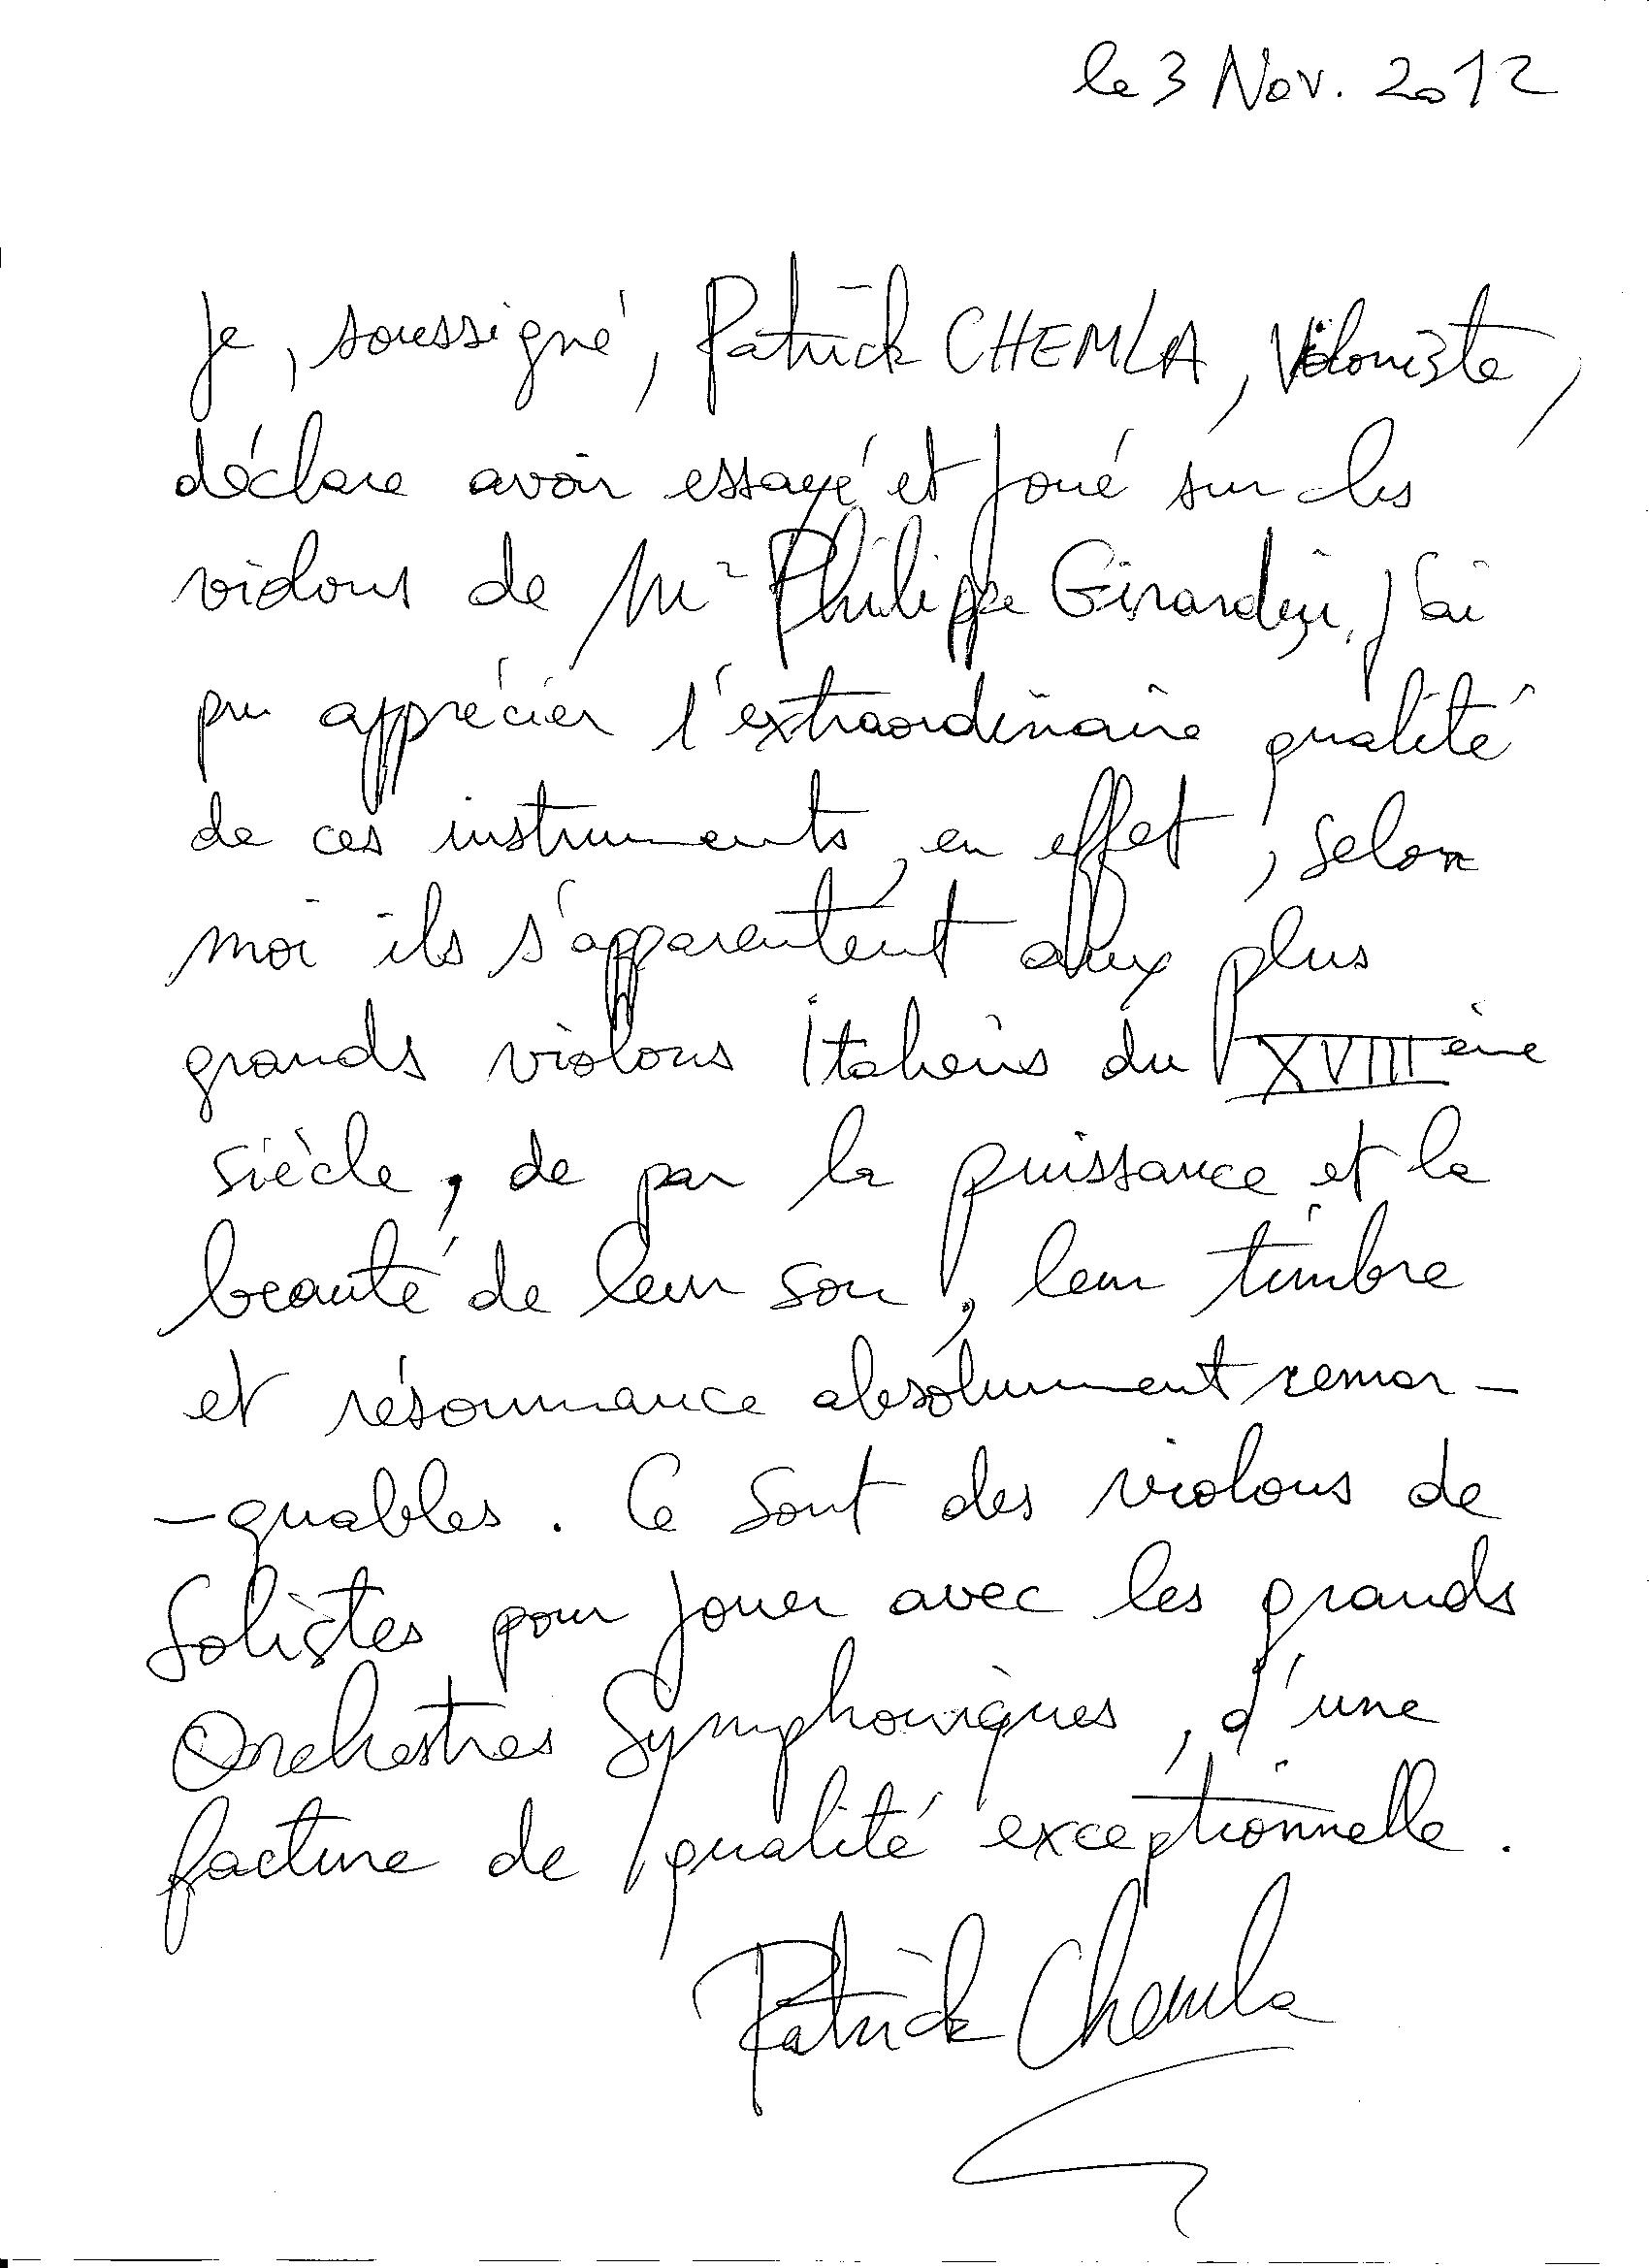 le 3 Nov. 2012
Je, soussigné, Patrick CHEMLA, Violoniste,
déclare avoir essayé et joué sur des
violons de Mr Philippe Girardin, j'ai
pu apprécier l'extraordinaire qualité
de ces instruments, en effet, selon
moi ils s'apparentent aux plus
grands violons Italiens du XVIIIème
siècle, de par la puissance et la
beauté de leur son, leur timbre
et résonnance absolument remar-
-quables. Ce sont des violons de
Solistes pour jouer avec les grands
Orchestres Symphoniques, d'une
facture de qualité exceptionnelle.
Patrick Chemla